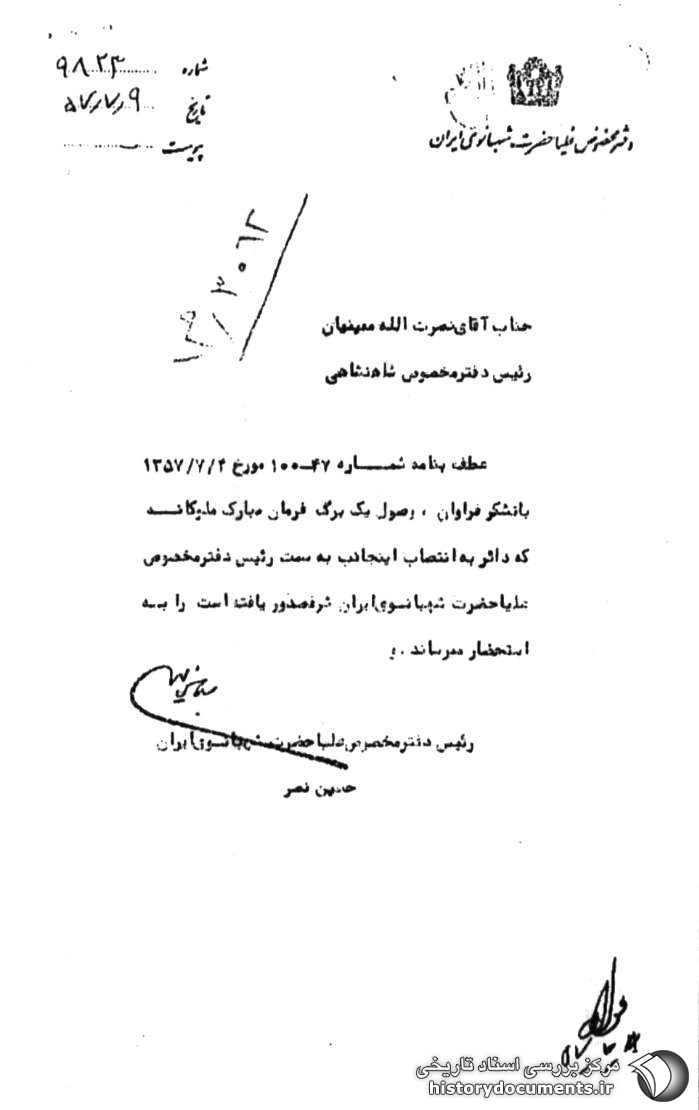 دفتر مخصوص علیاحضرت شهبانوی ایران
شماره ۹۸۲۳
تاریخ ۵۷٫۷٫۹
پیوست
جناب آقای نصرت الله معینیان
رئیس دفتر مخصوص شاهنشاهی
عطف بنامه شماره ۴۷-۱۰۰ مورخ ۱۳۵۷/۷/۴
باتشکر فراوان ، وصول یک برگ فرمان مبارک ملوکانه
که دائر به انتصاب اینجانب به سمت رئیس دفتر مخصوص
علیاحضرت شهبانوی ایران شرفصدور یافته است را به
استحضار میرساند .
رئیس دفتر مخصوص علیاحضرت شهبانوی ایران
حسین نصر
مرکز بررسی اسناد تاریخی
historydocuments.ir